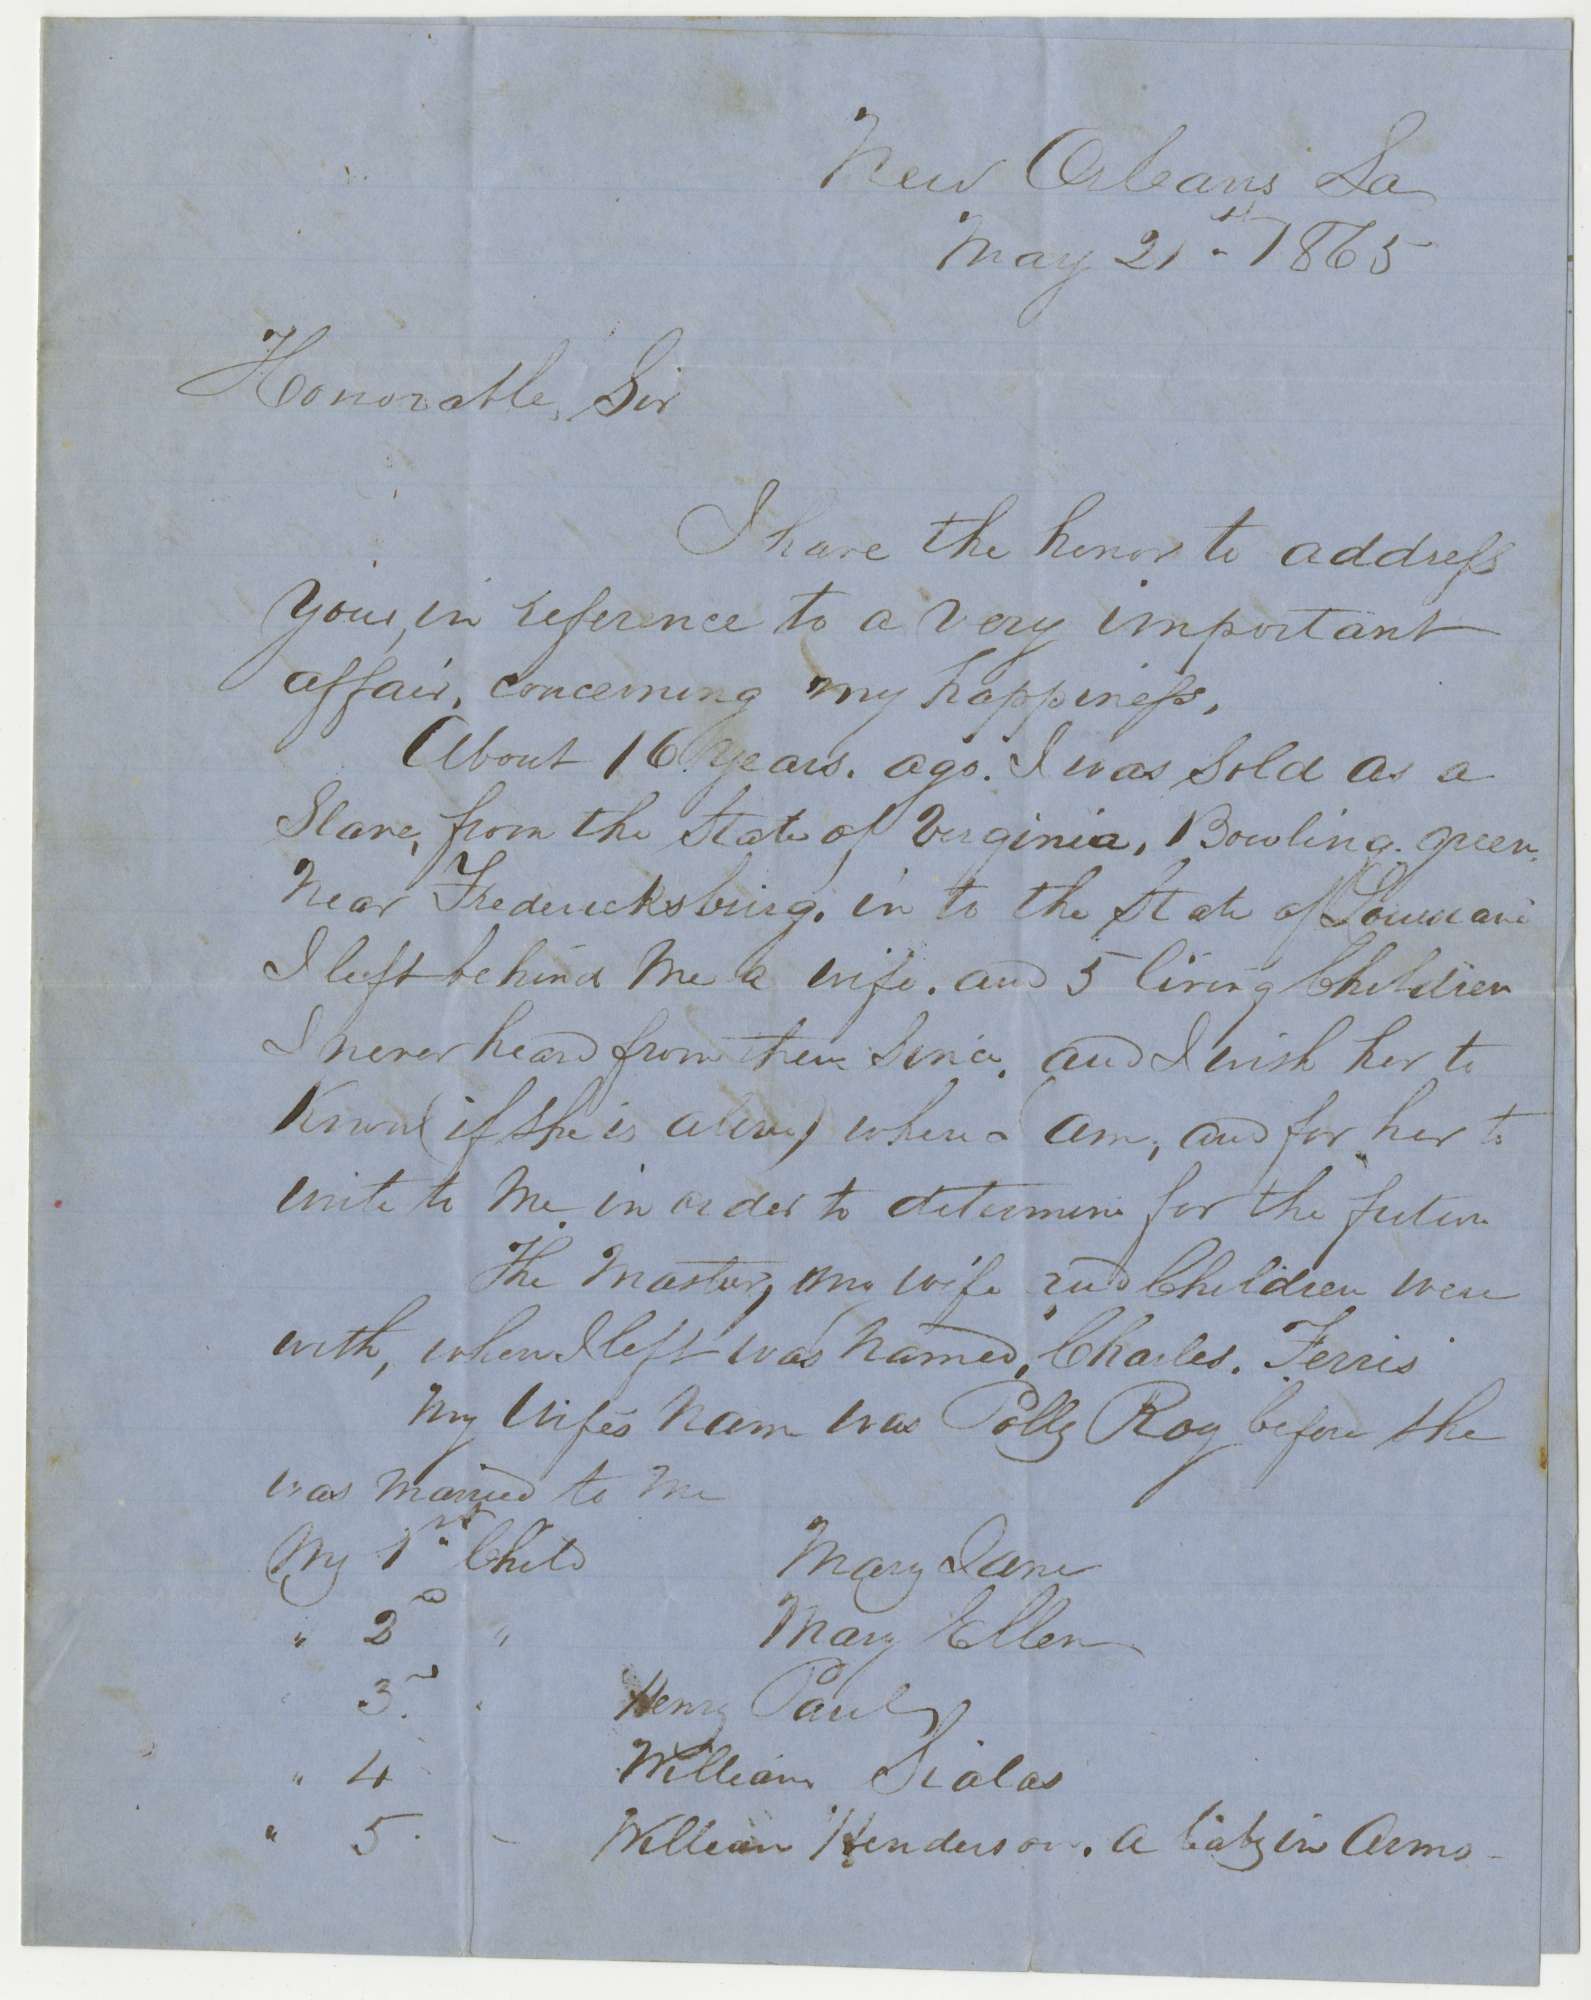 New Orleans La
May 21st 1865
Honorable, Sir
I have the honor to address
you, in reference to a very important
affair, concerning my happiness,
About 16 years. ago. I was sold as a
Slave, from the State of Verginia, Bowling. green.
Near Fredericksburg. in to the State of Louisiana
I left behind me a wife. and 5 living Children
I never heard from them since. and I wish her to
Know (if she is alive) where I am, and for her to
write to me in order to determine for the future
The Master, my wife and Children were
with, when I left was named, Charles. Ferris
My Wifes name was Polly Roy before she
was married to me
My 1st Child Mary Jane
" 2d " Mary Ellen
" 3d " Henry Paul
" 4 William Sialas
" 5. - William Henderson. a baby in arms -